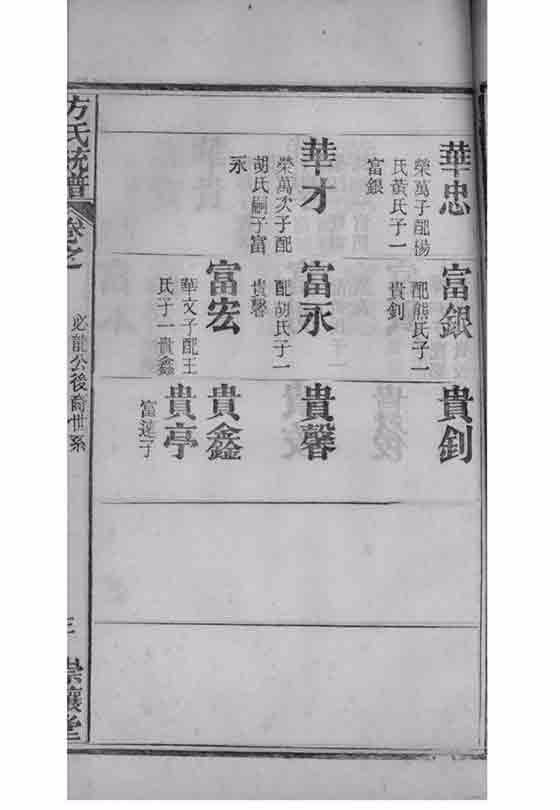 華忠
榮萬子配楊
氏黃氏子一
富銀
華才
榮萬次子配
胡氏嗣子富
永
富銀
配熊氏子一
貴釗
富永
配胡氏子一
貴馨
富宏
華文子配王
氏子一貴鑫
貴釗
貴馨
貴鑫
貴亭
富蓮子
方氏統譜
卷之
必龍公後裔世系
三
崇讓堂